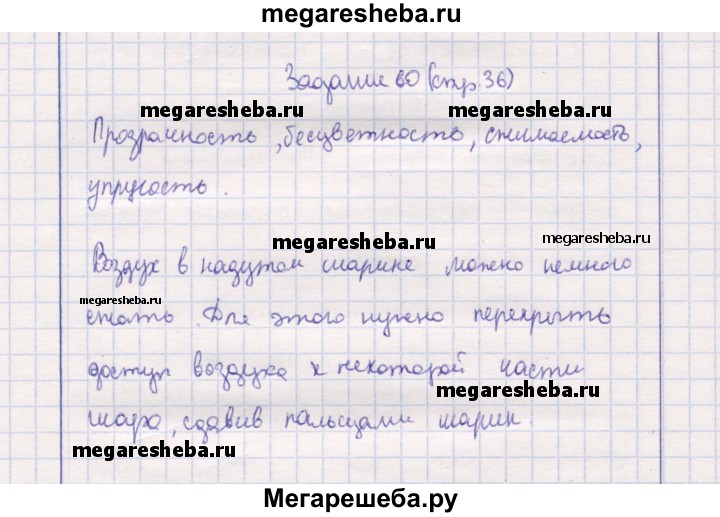 megaresheba.ru
Задание 60 (стр. 36)
megaresheba.ru megaresheba.ru
Прозрачность, бесцветность, сжимаемость,
упругость.
megaresheba.ru megaresheba.ru
Воздух в надутом шарике можно немного
megaresheba.ru
сжать. Для этого нужно перекрыть
доступ воздуха к некоторой части
megaresheba.ru
шара, сдавив пальцами шарик.
megaresheba.ru
Мегарешеба.ру